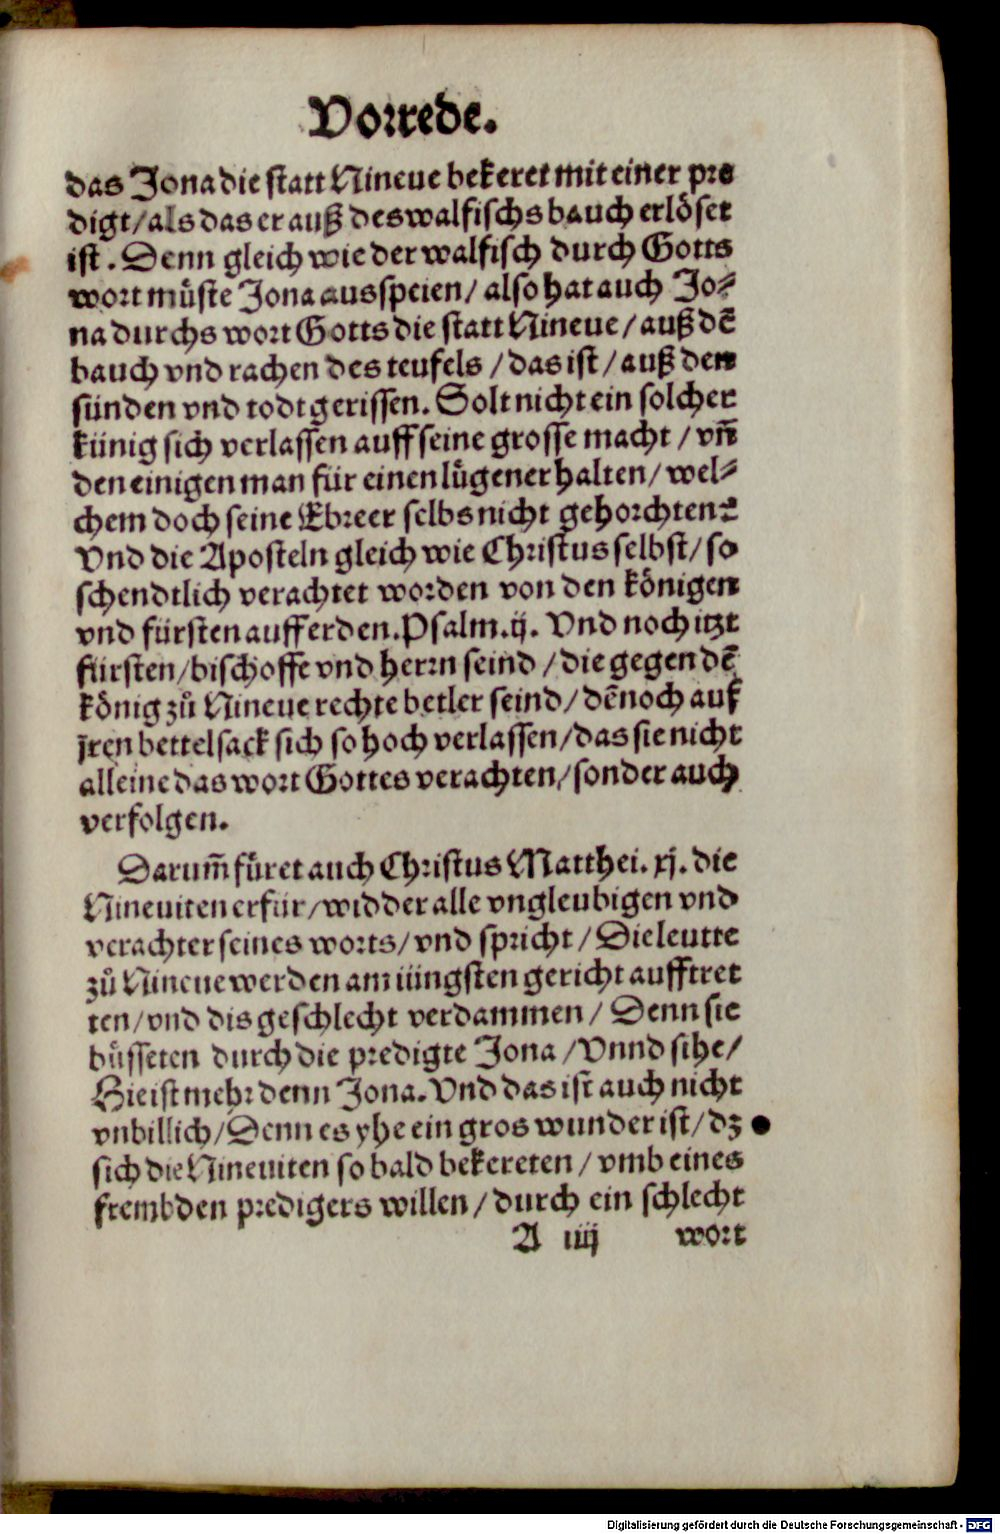 Vorrede.
das Jona die statt Nineue bekeret mit einer pre
digt/als das er auß des walfischs bauch erlöset
ist. Denn gleich wie der walfisch durch Gotts
wort müste Jona ausspeien/ also hat auch Jo⸗
na durchs wort Gotts die statt Nineue/auß dē
bauch vnd rachen des teufels /das ist/auß den
sünden vnd todt gerissen. Solt nicht ein solcher
künig sich verlassen auff seine grosse macht /vñ
den einigen man für einen lügener halten/ wel⸗
chem doch seine Ebreer selbs nicht gehorchten?
Vnd die Aposteln gleich wie Christus selbst/so
schendtlich verachtet worden von den königen
vnd fürsten auff erden.Psalm.ij. Vnd noch itzt
fürsten/bischoffe vnd herrn seind /die gegen dē
könig zů Nineue rechte betler seind/dēnoch auf
jren bettelsack sich so hoch verlassen/das sie nicht
alleine das wort Gottes verachten/sonder auch
verfolgen.
Darum̄ füret auch Christus Matthei. xj. die
Nineuiten erfür/widder alle vngleubigen vnd
verachter seines worts/vnd spricht/Die leutte
zů Nineue werden am iüngsten gericht aufftret
ten/vnd dis geschlecht verdammen/ Denn sie
büsseten durch die predigte Jona /Vnnd sihe/
Hie ist mehr denn Jona. Vnd das ist auch nicht
vnbillich/Denn es yhe ein gros wunder ist/dz
sich die Nineuiten so bald bekereten /vmb eines
frembden predigers willen/durch ein schlecht
A iiij wort
Digitalisierung gefördert durch die Deutsche Forschungsgemeinschaft - DFG